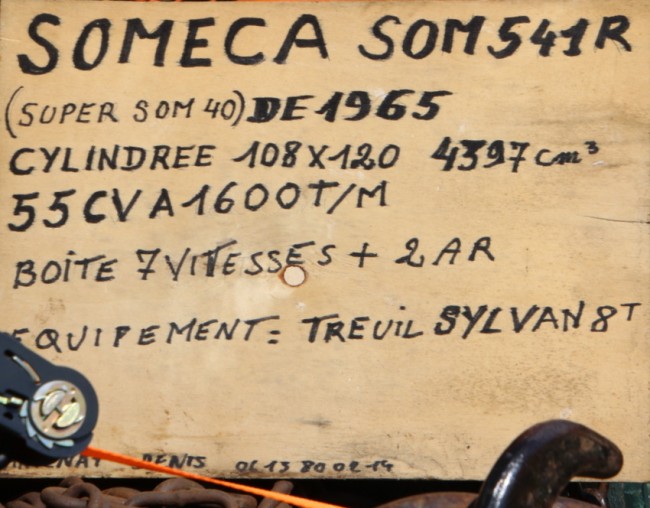 SOMECA SOM541R
(SUPER SOM 40) DE 1965
CYLINDREE 108X120 4397 cm³
55CV A 1600T/M
BOITE 7 VITESSES + 2 AR
EQUIPEMENT = TREUIL SYLVAN 8T
DENIS